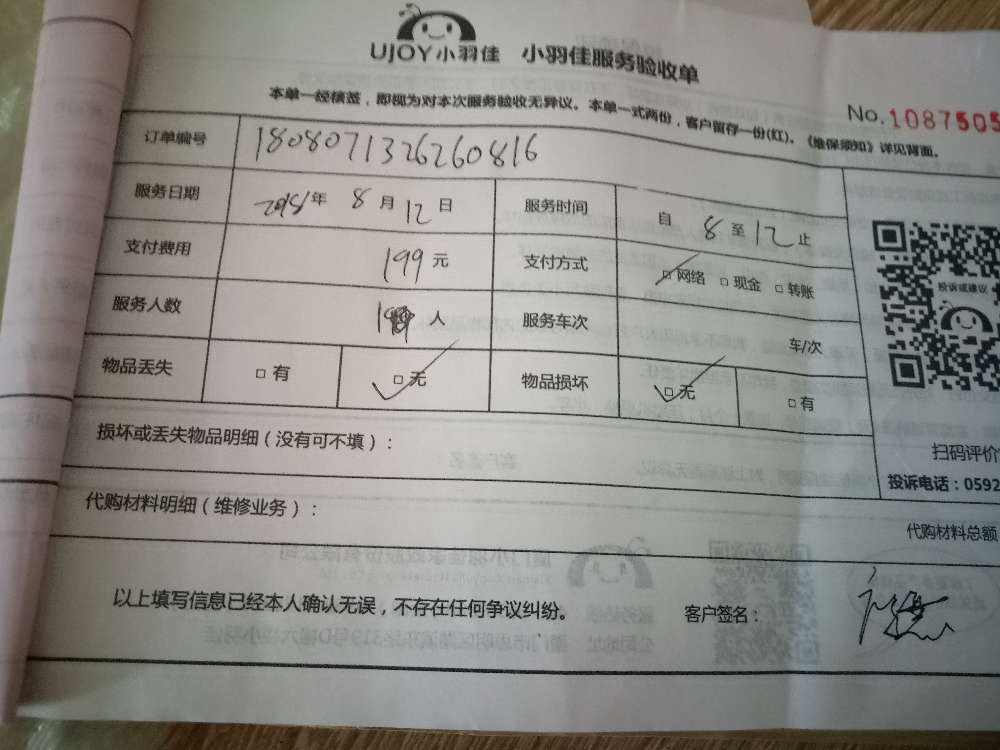 UJOY小羽佳 小羽佳服务验收单
本单一经核签，即视为对本次服务验收无异议。本单一式两份，客户留存一份(红)。《维保须知》详见背面。
No.1087505
订单编号 180807132626081​6
服务日期 2018年 8月12日 服务时间 自 8 至 12 止
支付费用 199元 支付方式 □网络 □现金 □转账
服务人数 人 服务车次 车/次
物品丢失 □有 □无 物品损坏 □无 □有
投诉或建议
损坏或丢失物品明细（没有可不填）：
扫码评价
投诉电话：0592
代购材料明细（维修业务）：
代购材料总额
以上填写信息已经本人确认无误，不存在任何争议纠纷。 客户签名：